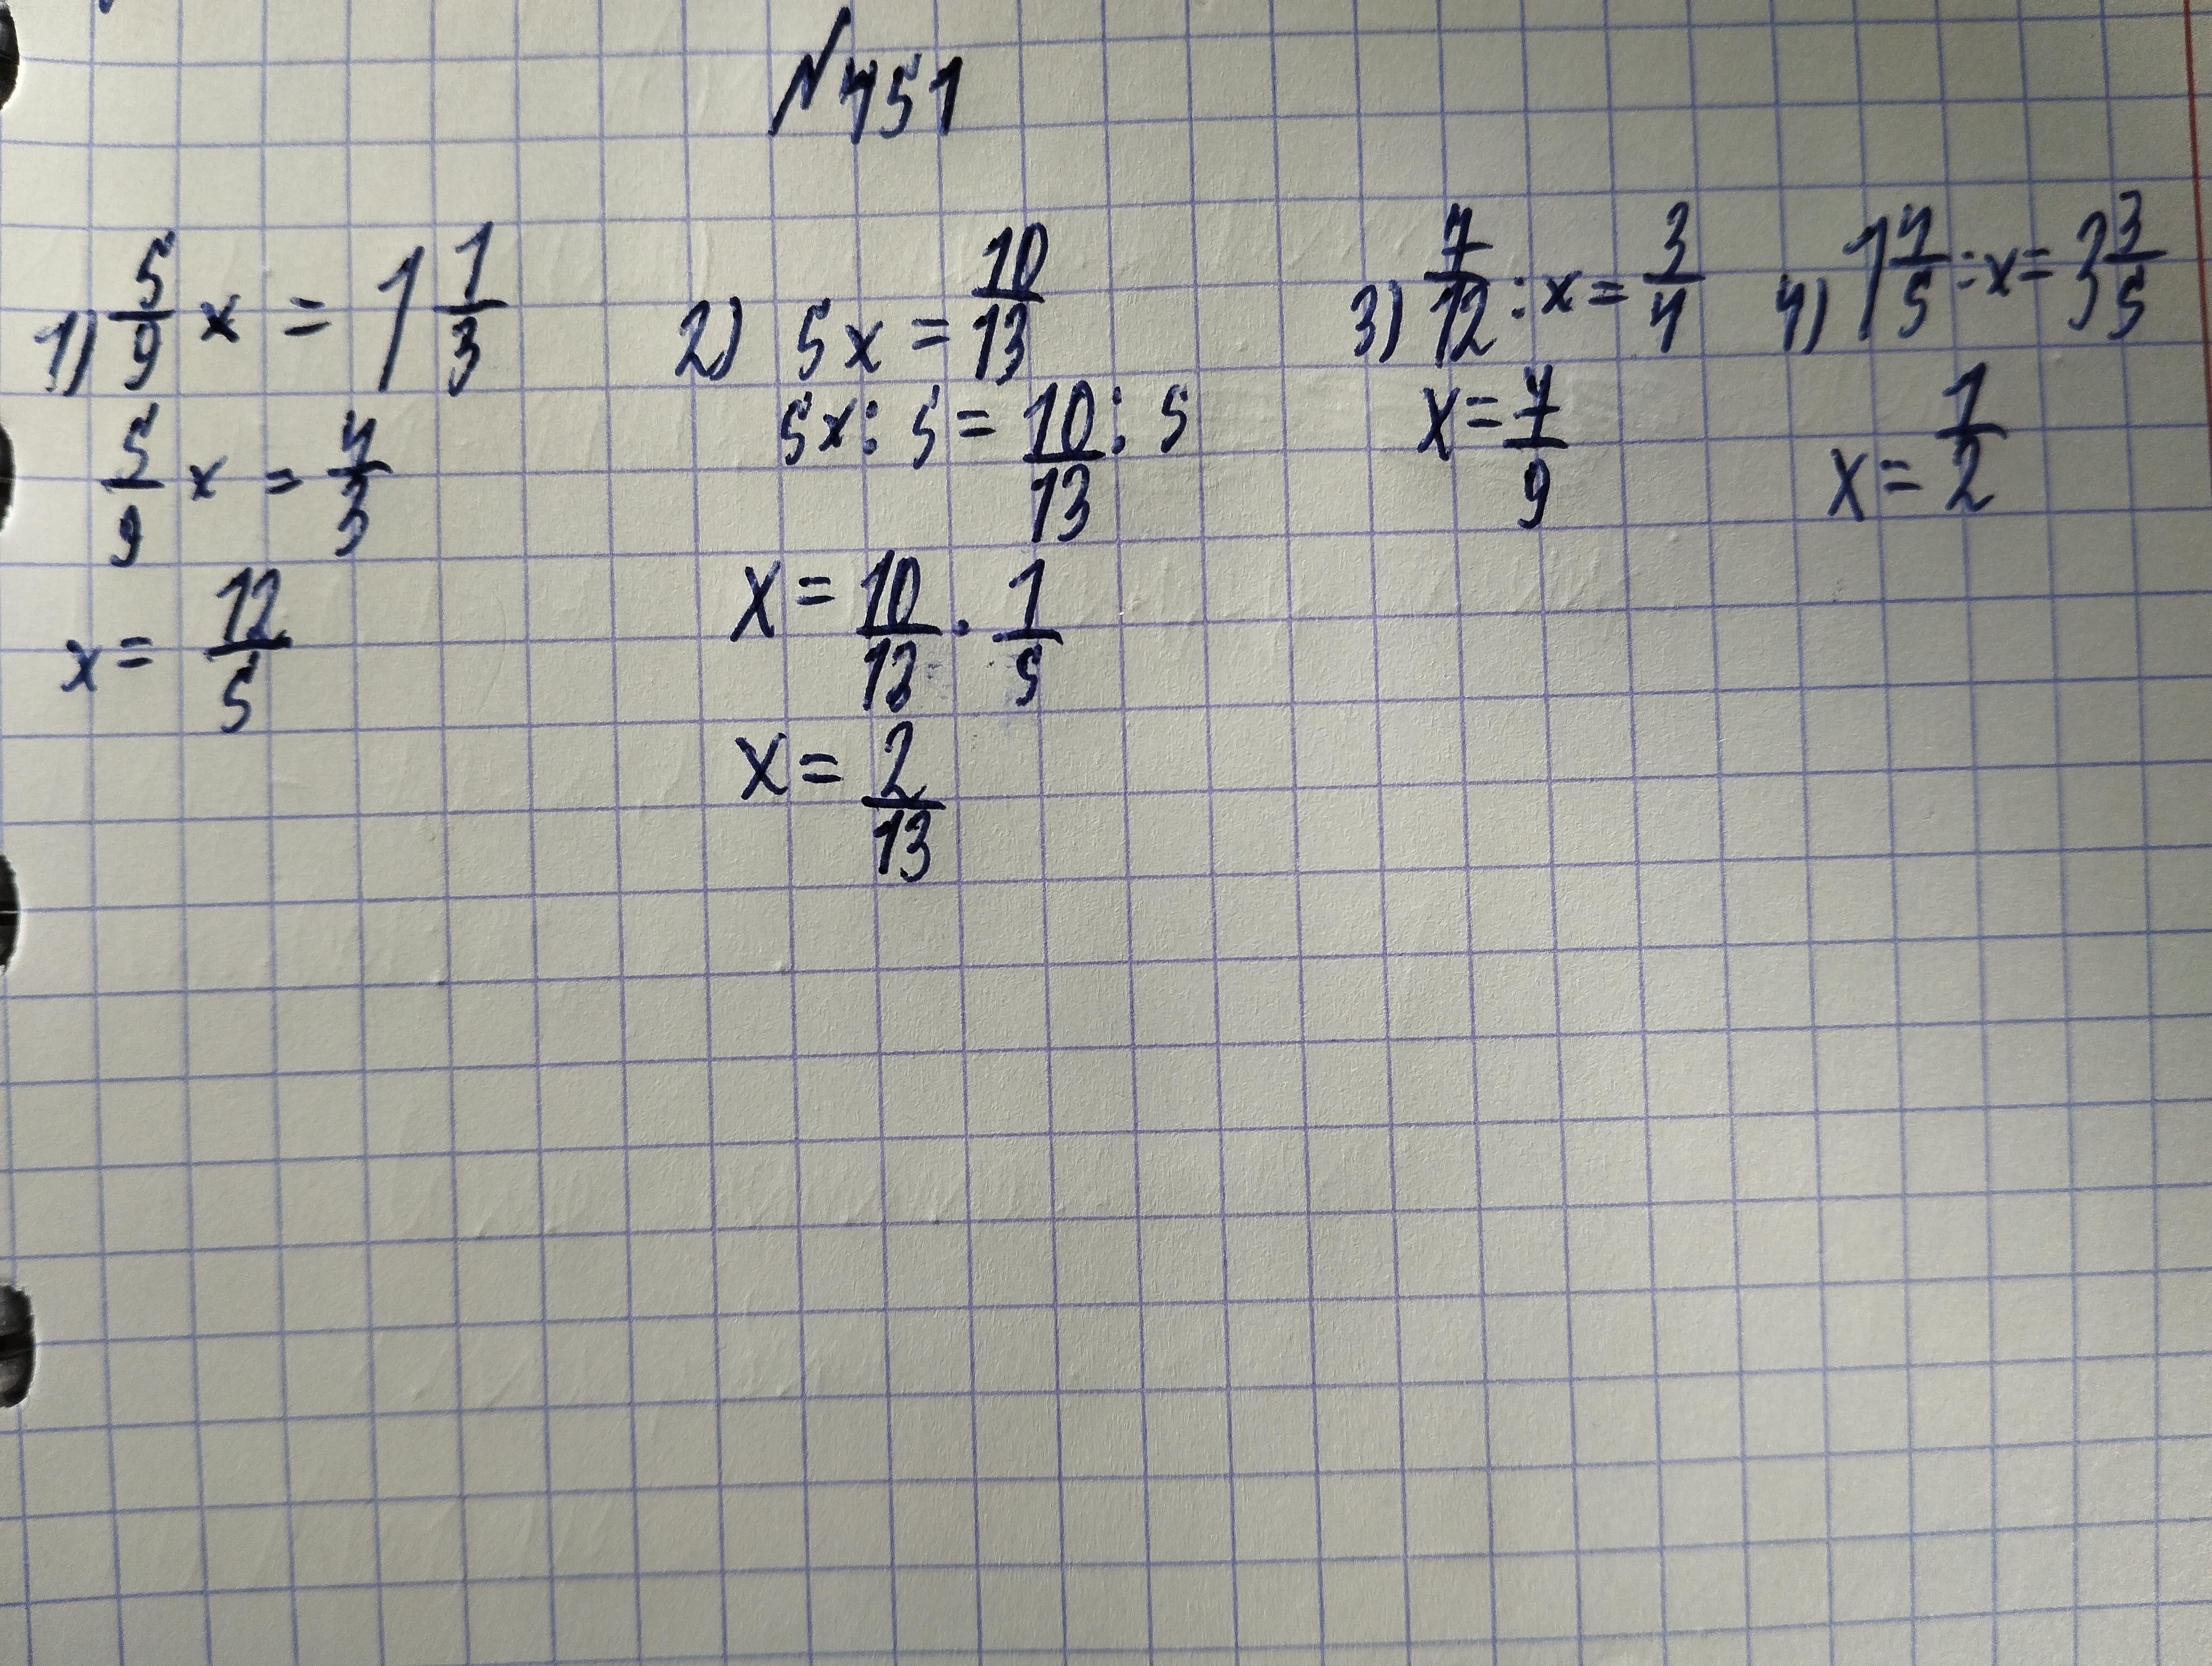 №451
1) 5/9 x = 1 1/3
5/9 x = 4/3
x = 12/5
2) 5x = 10/13
5x : 5 = 10/13 : 5
x = 10/13 · 1/5
x = 2/13
3) 7/12 : x = 3/4
x = 7/9
4) 1 4/5 : x = 3 3/5
x = 1/2